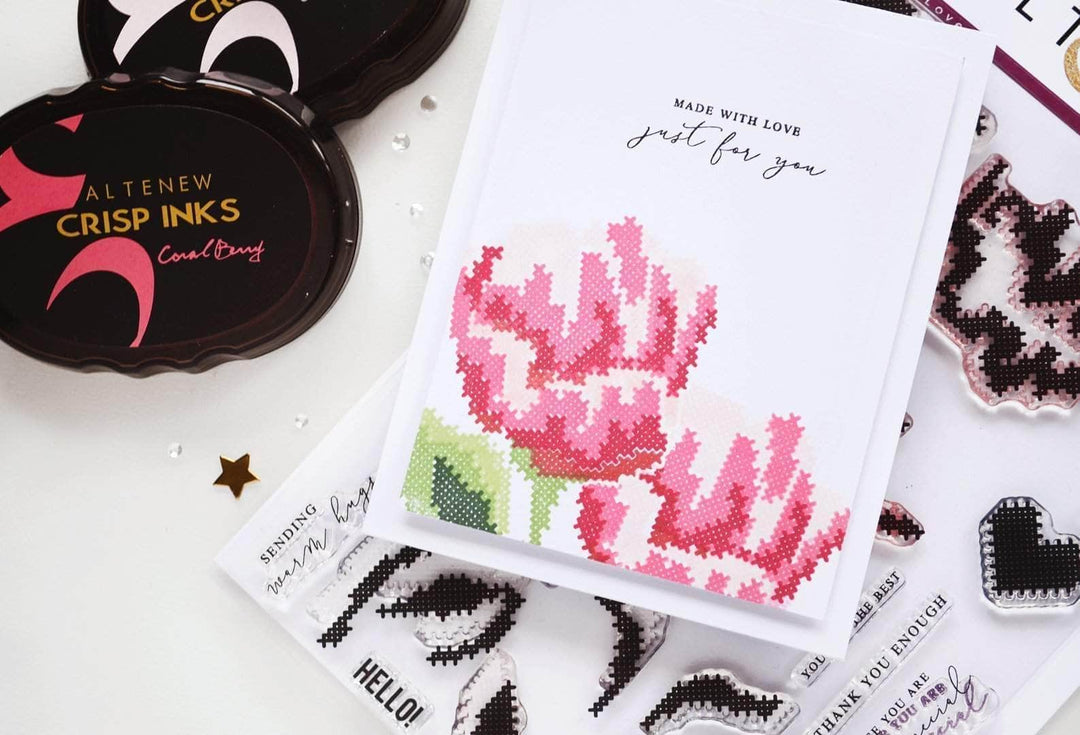 CRISP INKS
ALTENEW
CRISP INKS
Coral Berry
MADE WITH LOVE
just for you
Love
LT
SENDING
warm hugs
HELLO!
YOU
THE BEST
THANK YOU ENOUGH
YOU ARE
YOU ARE
special